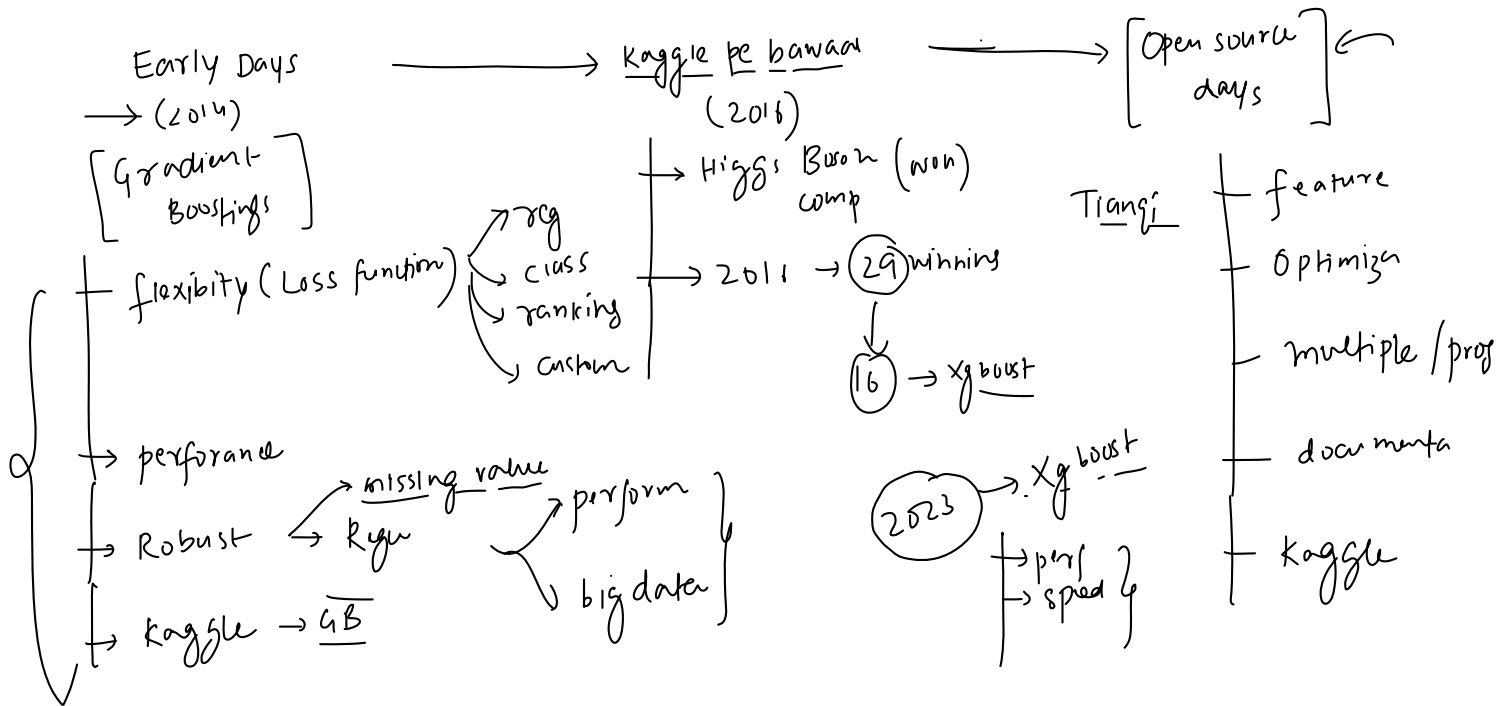 Early Days
→ (2014)
[Gradient
Boostings]
flexibity (Loss function)
reg
class
ranking
custom
→ perforance
→ Robust
→ missing value
→ Regu
perform
big data
→ Kaggle → GB
Kaggle pe bawaal
(2016)
→ Higgs Boson (won)
comp
→ 2016 → 29 winnins
16 → Xgboost
2023 → Xgboost
→ perf
→ speed
[Open source
days]
Tianqi
feature
Optimiza
multiple / prog
documenta
Kaggle